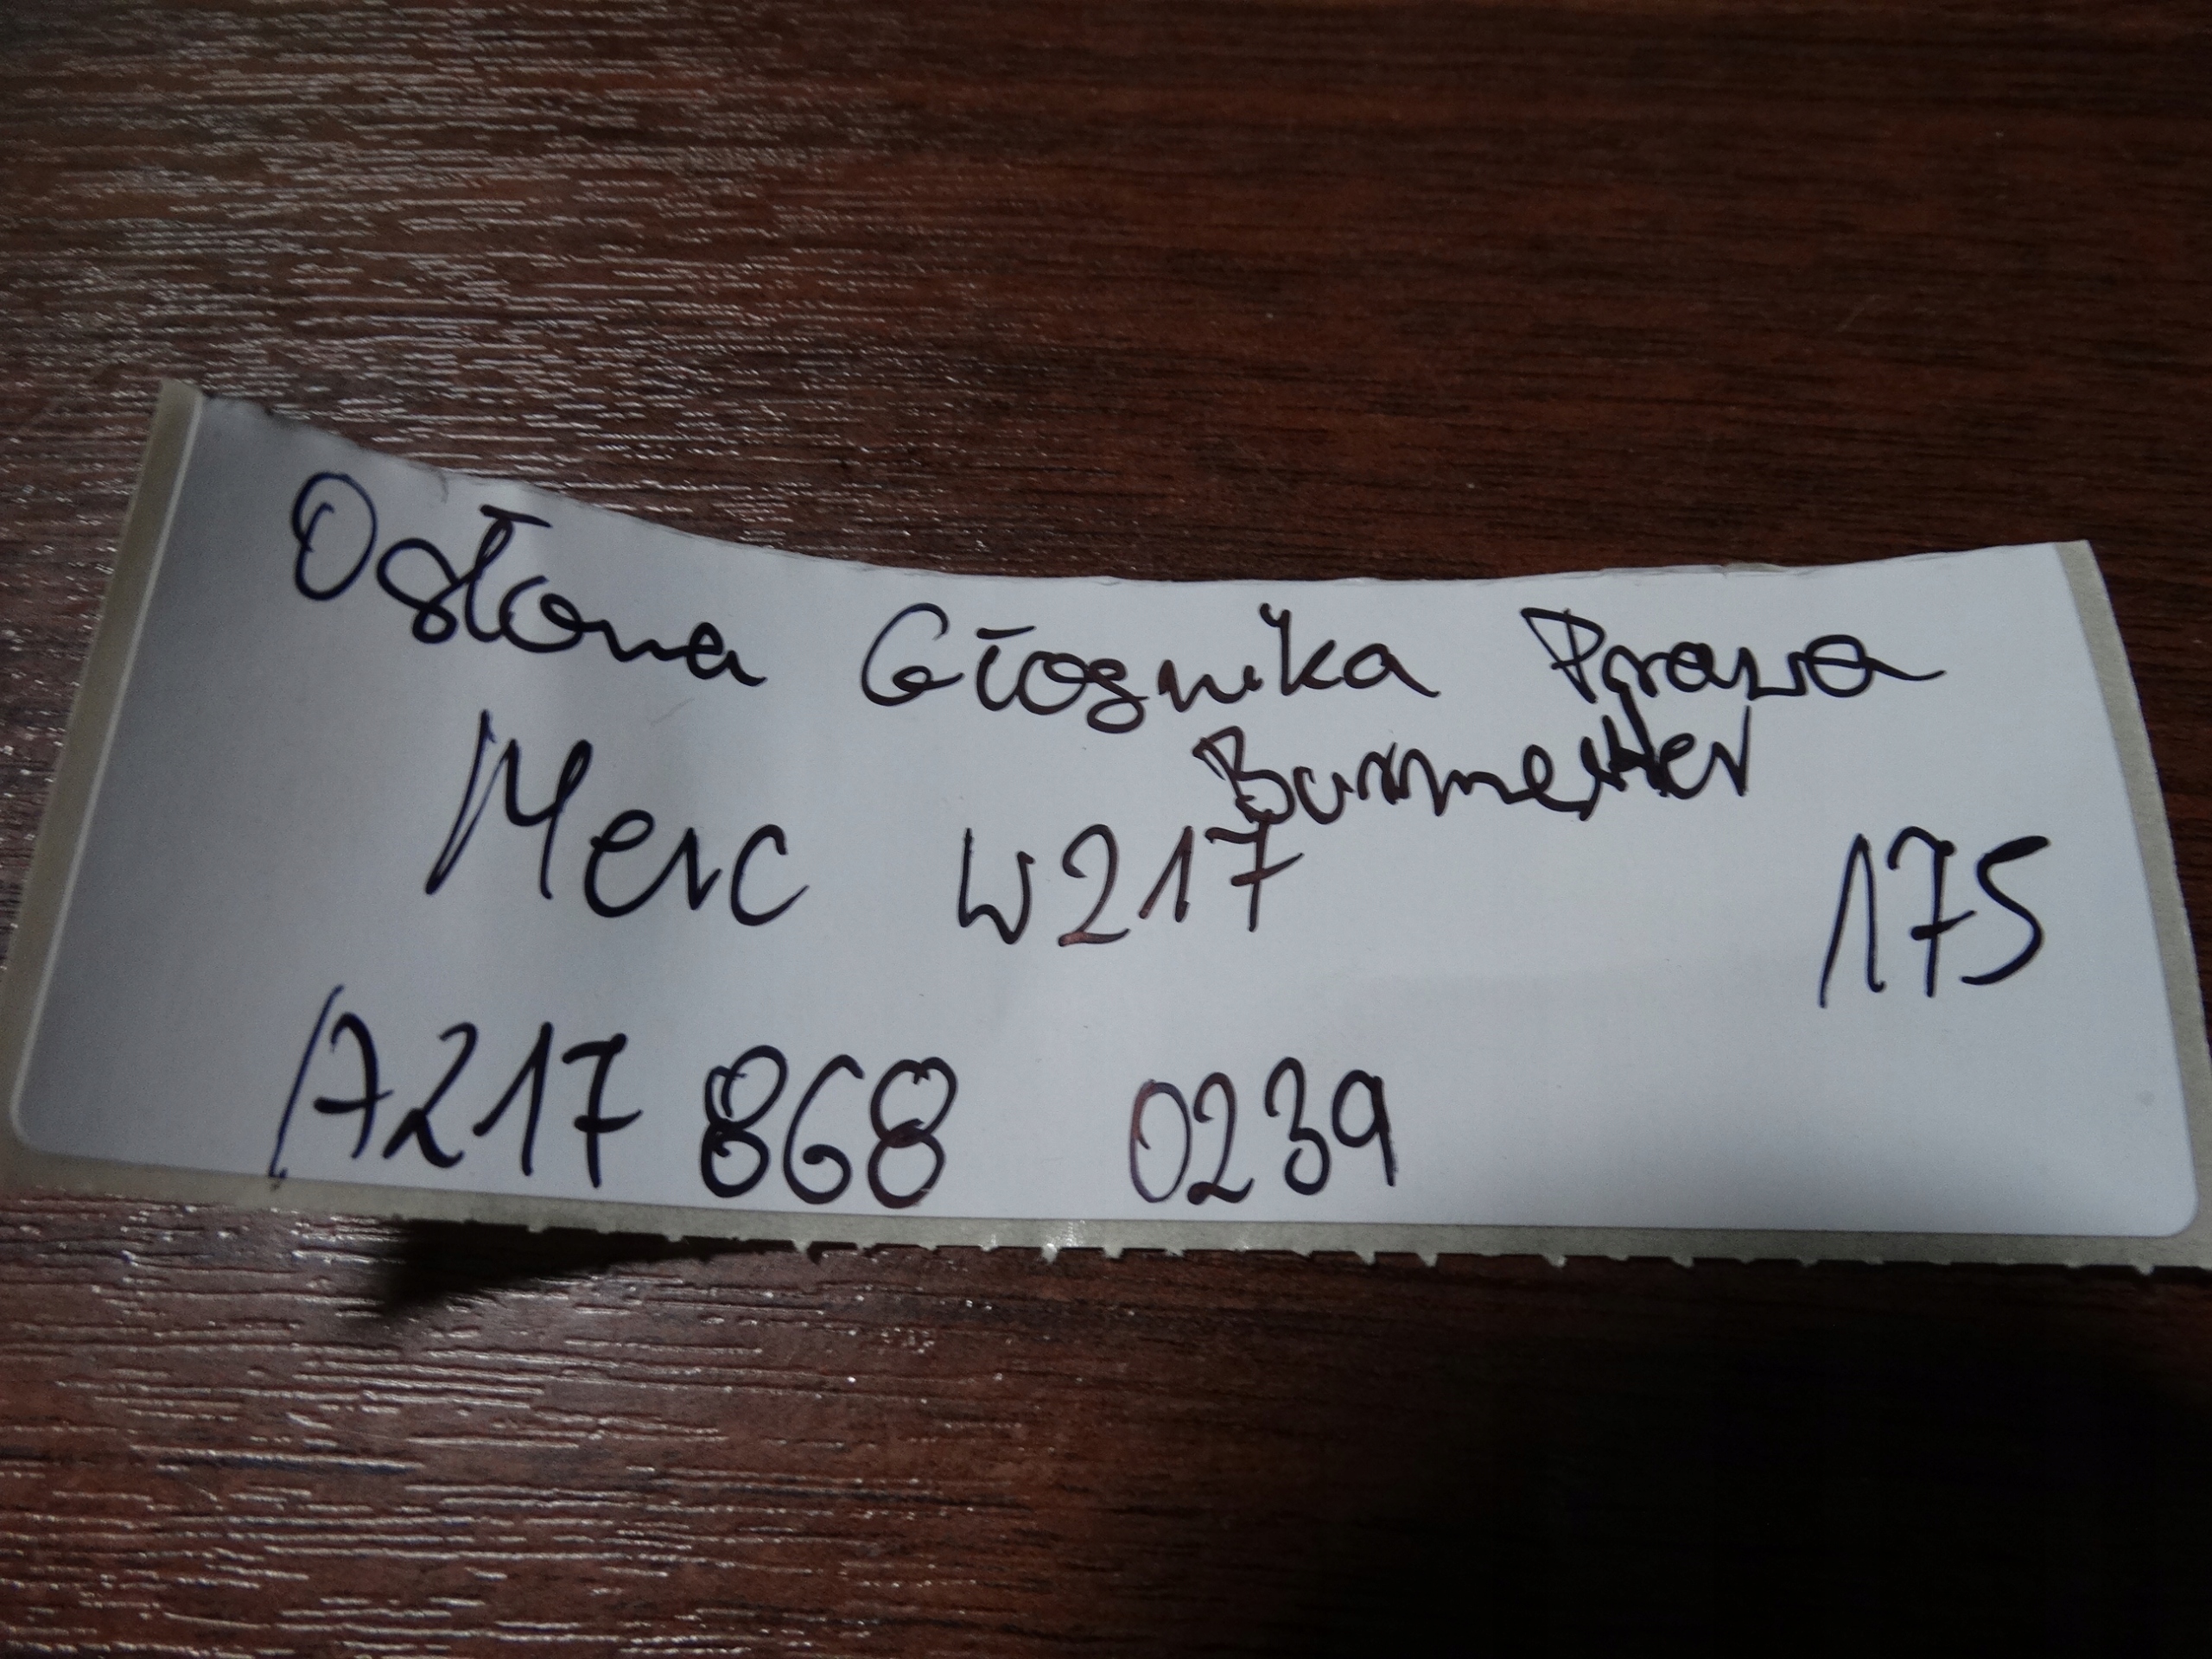 Osłona Głośnika Prawa
Burmester
Merc W217
175
A217 868 0239